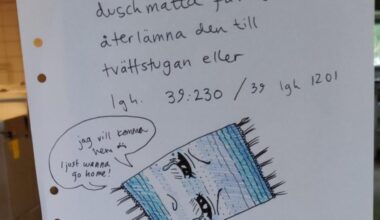 duschmatta
återlämna den till
tvättstugan eller
lgh. 39:230 / 39 lgh 1201
jag vill komma
hem
I just wanna
go home!